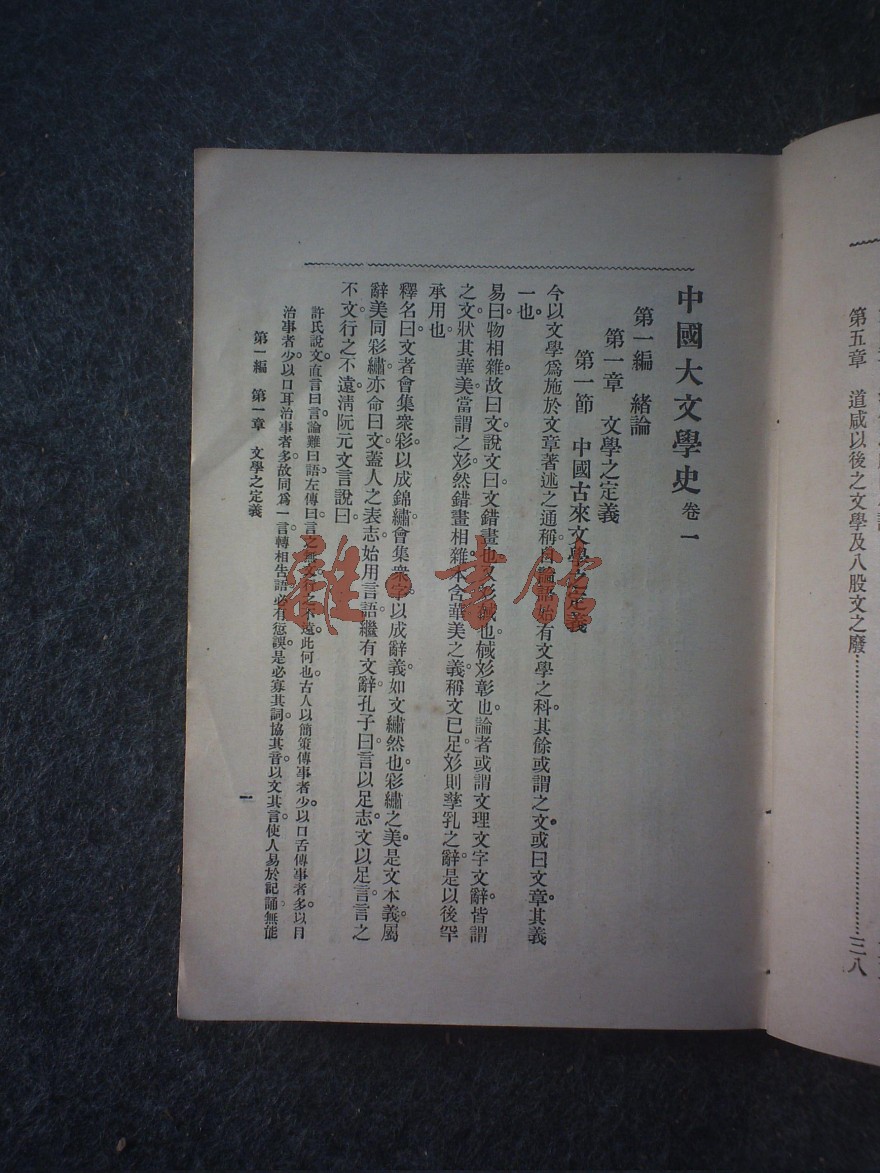 中國大文學史 卷一
第一編 緒論
第一章 文學之定義
第一節 中國古來文學之定義
今以文學爲施於文章著述之通稱自論語始有文學之科。其餘或謂之文。或曰文章。其義
一也。
易曰物相雜。故曰文。說文曰文錯畫也。又彣也。彣彰也。論者或謂文理文字文辭。皆謂
之文。狀其華美。當謂之彣。然錯畫相雜。本含華美之義。稱文已足。彣則孳乳之辭。是以後罕
承用也。
釋名曰文者會集衆彩。以成錦繡。會集衆字。以成辭義。如文繡然也。彩繡之美。是文本義。屬
辭美同彩繡。亦命曰文。蓋人之表志。始用言語。繼有文辭。孔子曰言以足志。文以足言。言之
不文。行之不遠。淸阮元文言說曰。
許氏說文。直言曰言。論難曰語。左傳曰。言之無文。行之不遠。此何也。古人以簡策傳事者少。以口舌傳事者多。以目
治事者少。以口耳治事者多。故同爲一言。轉相告語。必有愆誤。是必寡其詞。協其音。以文其言。使人易於記誦。無能
第一編 第一章 文學之定義
一
第五章 道咸以後之文學及八股文之廢……三八
雜·書館